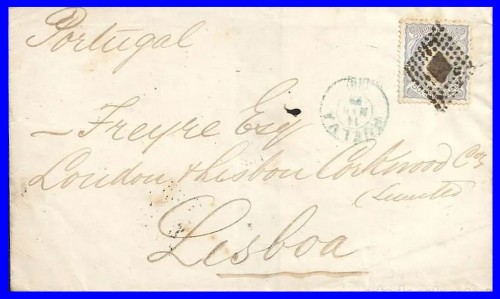 Portugal
HUELVA
— Freyre Esq
London & Lisbon Corkwood Coy
(Limited
Lisboa